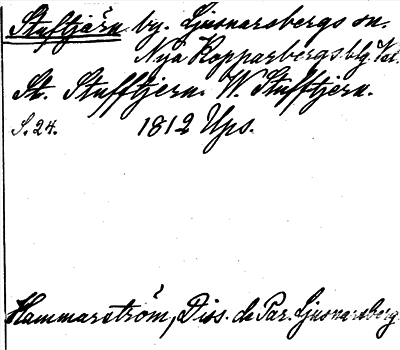 Stuftjärn by. Ljusnarsbergs sn.
Nya Kopparbergs blg. Vsl.
St. Stufftjern. W. Stufftjern.
S. 24. 1812 Ups.
Hammarström, Diss. de Par. Ljusnarsberg